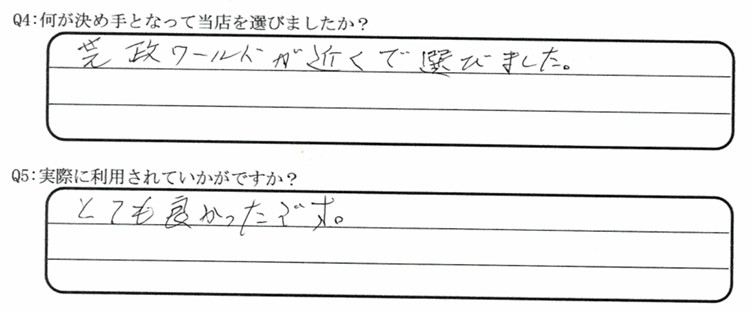 Q4:何が決め手となって当店を選びましたか?
芝政ワールドが近くで選びました。
Q5:実際に利用されていかがですか?
とても良かったです。